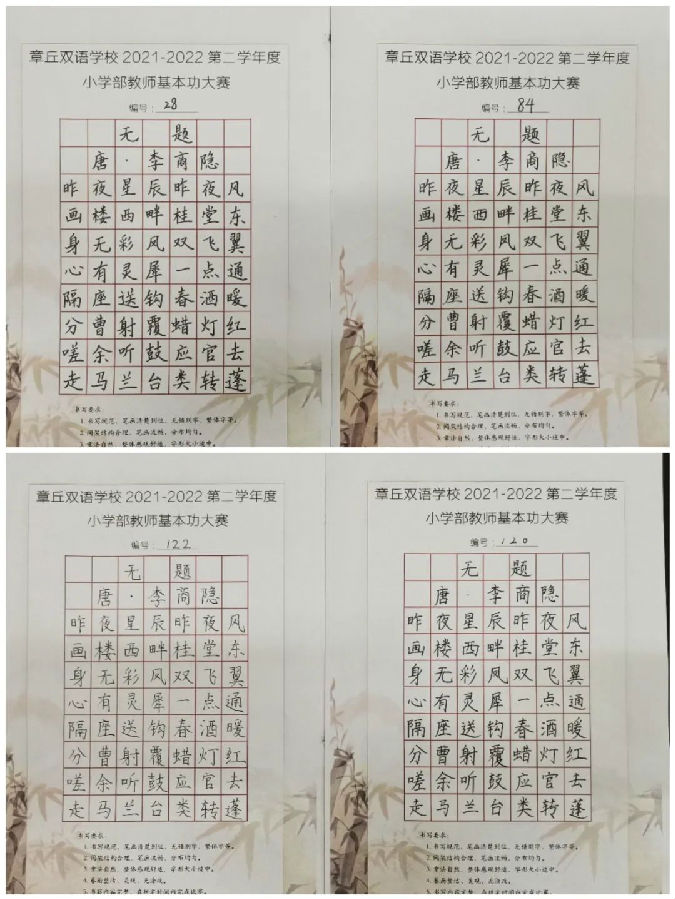 章丘双语学校 2021-2022 第二学年度
小学部教师基本功大赛
编号：28
无 题
唐·李商隐
昨夜星辰昨夜风
画楼西畔桂堂东
身无彩凤双飞翼
心有灵犀一点通
隔座送钩春酒暖
分曹射覆蜡灯红
嗟余听鼓应官去
走马兰台类转蓬
书写要求：
1. 书写规范，笔画清楚到位，无错别字，整体字等。
2. 间架结构合理，笔画流畅，分布均匀。
3. 章法自然，整体感观舒适，字形大小适中。
章丘双语学校 2021-2022 第二学年度
小学部教师基本功大赛
编号：84
无 题
唐·李商隐
昨夜星辰昨夜风
画楼西畔桂堂东
身无彩凤双飞翼
心有灵犀一点通
隔座送钩春酒暖
分曹射覆蜡灯红
嗟余听鼓应官去
走马兰台类转蓬
书写要求：
1. 书写规范，笔画清楚到位，无错别字，整体字等。
2. 间架结构合理，笔画流畅，分布均匀。
3. 章法自然，整体感观舒适，字形大小适中。
章丘双语学校 2021-2022 第二学年度
小学部教师基本功大赛
编号：122
无 题
唐·李商隐
昨夜星辰昨夜风
画楼西畔桂堂东
身无彩凤双飞翼
心有灵犀一点通
隔座送钩春酒暖
分曹射覆蜡灯红
嗟余听鼓应官去
走马兰台类转蓬
书写要求：
1. 书写规范，笔画清楚到位，无错别字，整体字等。
2. 间架结构合理，笔画流畅，分布均匀。
3. 章法自然，整体感观舒适，字形大小适中。
4. 卷面整洁，美观，无涂改。
章丘双语学校 2021-2022 第二学年度
小学部教师基本功大赛
编号：120
无 题
唐·李商隐
昨夜星辰昨夜风
画楼西畔桂堂东
身无彩凤双飞翼
心有灵犀一点通
隔座送钩春酒暖
分曹射覆蜡灯红
嗟余听鼓应官去
走马兰台类转蓬
书写要求：
1. 书写规范，笔画清楚到位，无错别字，整体字等。
2. 间架结构合理，笔画流畅，分布均匀。
3. 章法自然，整体感观舒适，字形大小适中。
4. 卷面整洁，美观，无涂改。